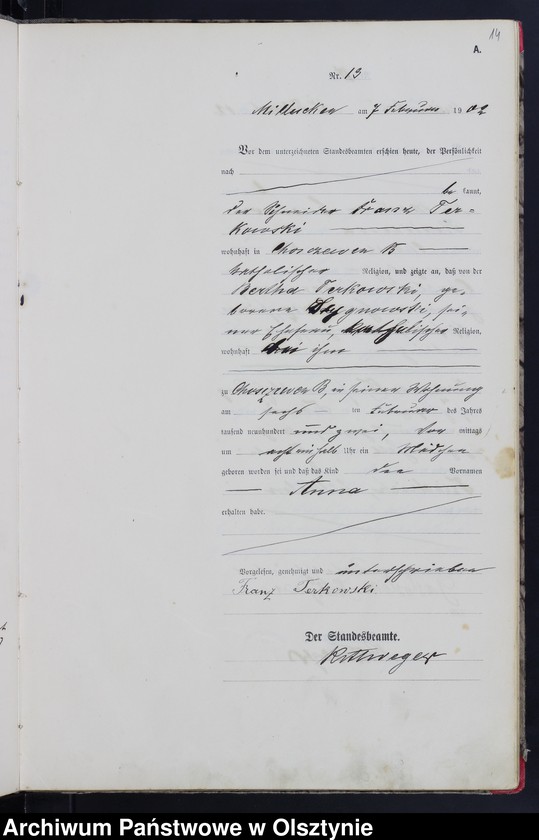 14
A.
Nr. 13
Millucken am 7 Februar 1902
Vor dem unterzeichneten Standesbeamten erschien heute, der Persönlichkeit
nach
be kannt,
der Schneider Franz Ter=
kowski
wohnhaft in Choszewen B
katholischer Religion, und zeigte an, daß von der
Bertha Terkowski, ge=
borene gnowski, sei=
ner Ehefrau, katholischer Religion,
wohnhaft bei ihm
zu Choszewen B, in seiner Wohnung
am sechs ten Februar des Jahres
tausend neunhundert und zwei, Vor mittags
um acht ein halb Uhr ein Mädchen
geboren worden sei und daß das Kind den Vornamen
Anna
erhalten habe.
Vorgelesen, genehmigt und unterschrieben
Franz Terkowski
Der Standesbeamte.
Rittweger
Archiwum Państwowe w Olsztynie